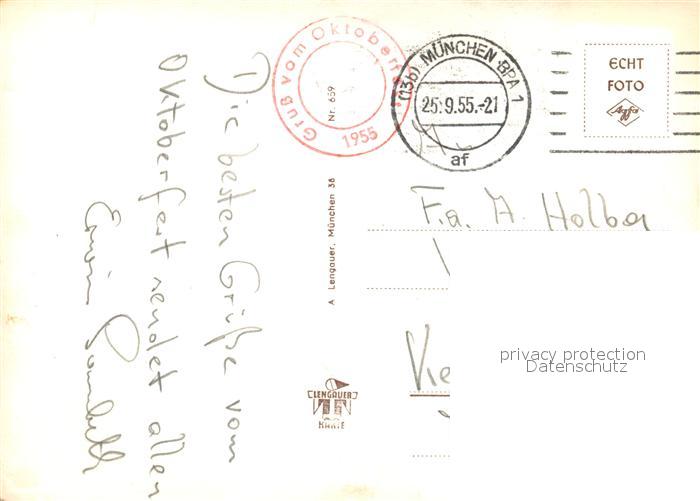 Gruß vom Oktoberf
1955
Nr. 659
(13b) MÜNCHEN BPA 1
25.9.55.-21
af
ECHT
FOTO
Agfa
Die besten Grüße vom
Oktoberfest sendet allen
Erwin
F.a. A. Holba
Vie
A Lengauer, München 38
LENGAUER
KARTE
privacy protection
Datenschutz